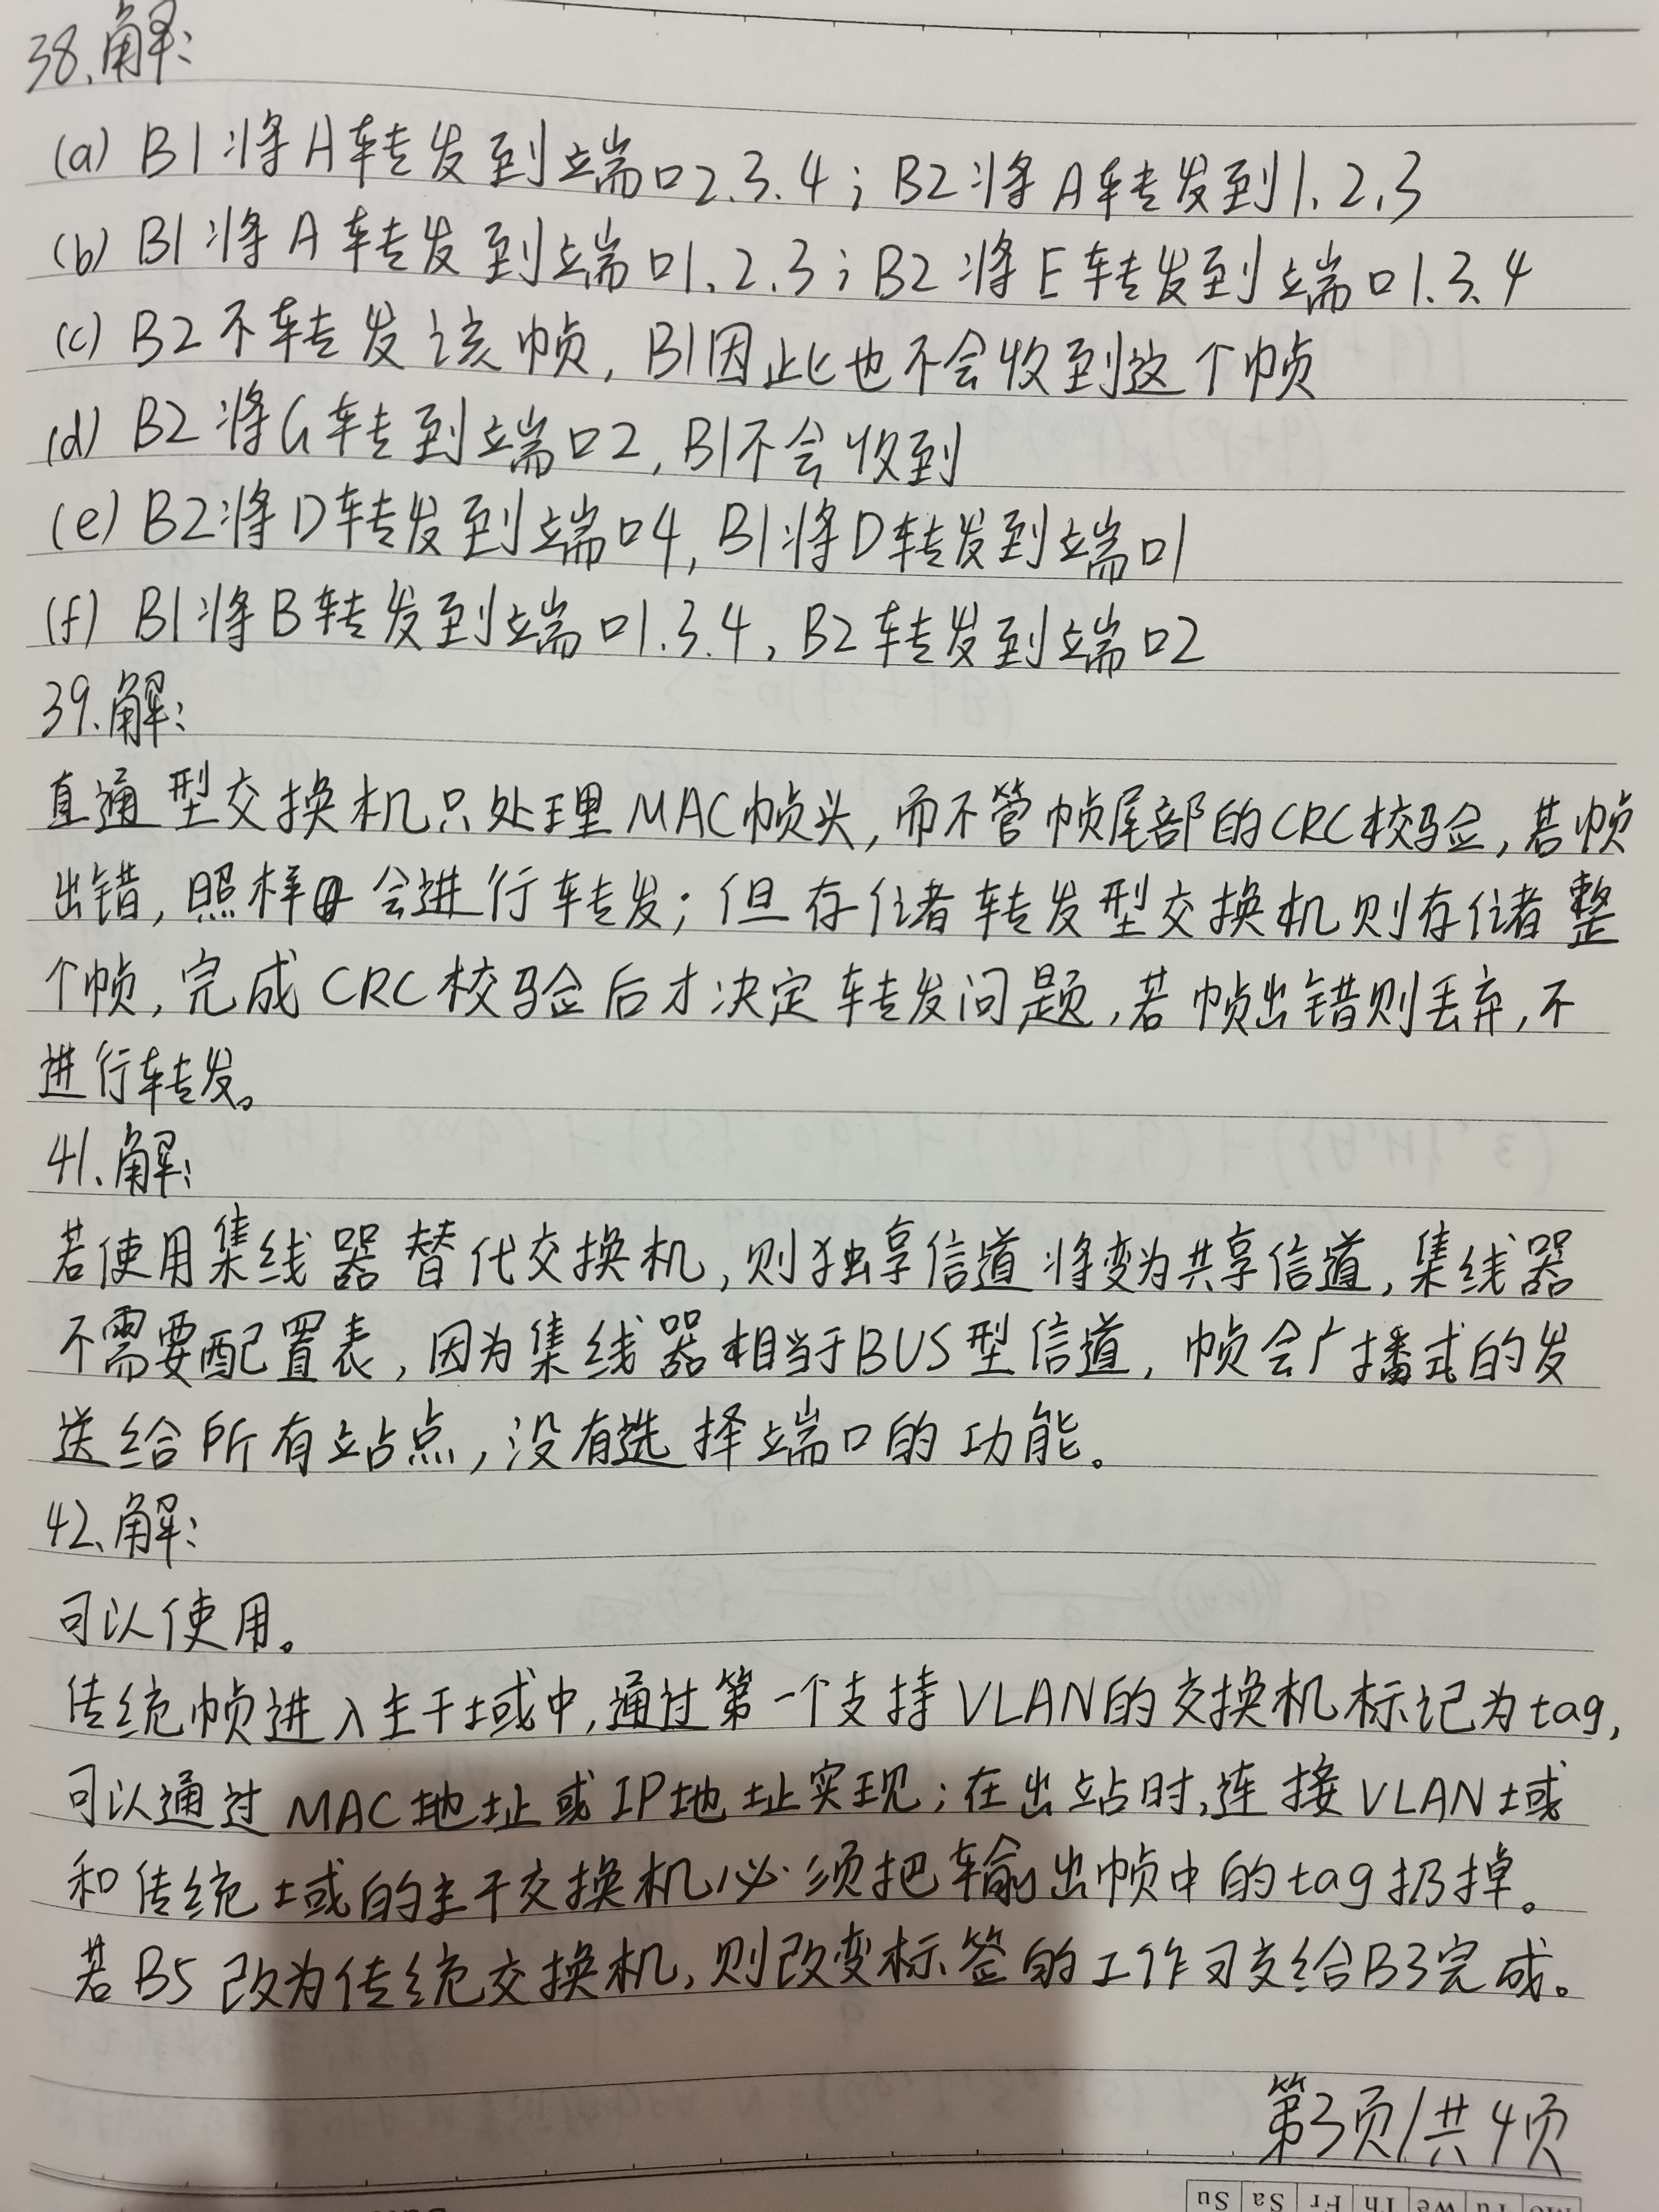 38.解:
(a) B1将A转发到端口2.3.4；B2将A转发到1.2.3
(b) B1将A转发到端口1.2.3；B2将E转发到端口1.3.4
(c) B2不转发该帧，B1因此也不会收到这个帧
(d) B2将G转到端口2，B1不会收到
(e) B2将D转发到端口4，B1将D转发到端口1
(f) B1将B转发到端口1.3.4，B2转发到端口2
39.解:
直通型交换机只处理MAC帧头，而不管帧尾部的CRC校验，若帧
出错，照样会进行转发；但存储转发型交换机则存储整
个帧，完成CRC校验后才决定转发问题，若帧出错则丢弃，不
进行转发。
41.解:
若使用集线器替代交换机，则独享信道将变为共享信道，集线器
不需要配置表，因为集线器相当于BUS型信道，帧会广播式的发
送给所有站点，没有选择端口的功能。
42.解:
可以使用。
传统帧进入主干域中，通过第一个支持VLAN的交换机标记为tag，
可以通过MAC地址或IP地址实现；在出站时，连接VLAN域
和传统域的主干交换机必须把输出帧中的tag扔掉。
若B5改为传统交换机，则改变标签的工作可交给B3完成。
第3页/共4页
Mo Tu We Th Fr Sa Su